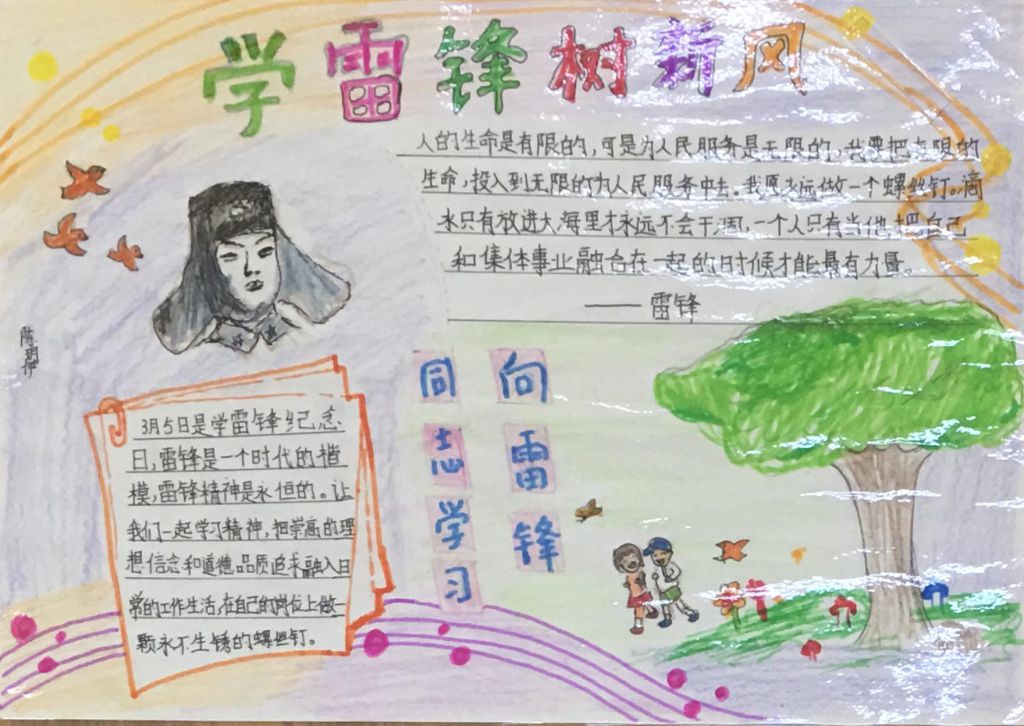 学雷锋树新风
人的生命是有限的,可是为人民服务是无限的,我要把有限的
生命,投入到无限的为人民服务中去。我愿永远做一个螺丝钉。滴
水只有放进大海里才永远不会干涸,一个人只有当他把自己
和集体事业融合在一起的时候才能最有力量。
——雷锋
向雷锋
同志学习
3月5日是学雷锋纪念
日,雷锋是一个时代的楷
模,雷锋精神是永恒的。让
我们一起学习精神,把崇高的理
想信念和道德品质追求融入日
常的工作生活,在自己的岗位上做一
颗永不生锈的螺丝钉。